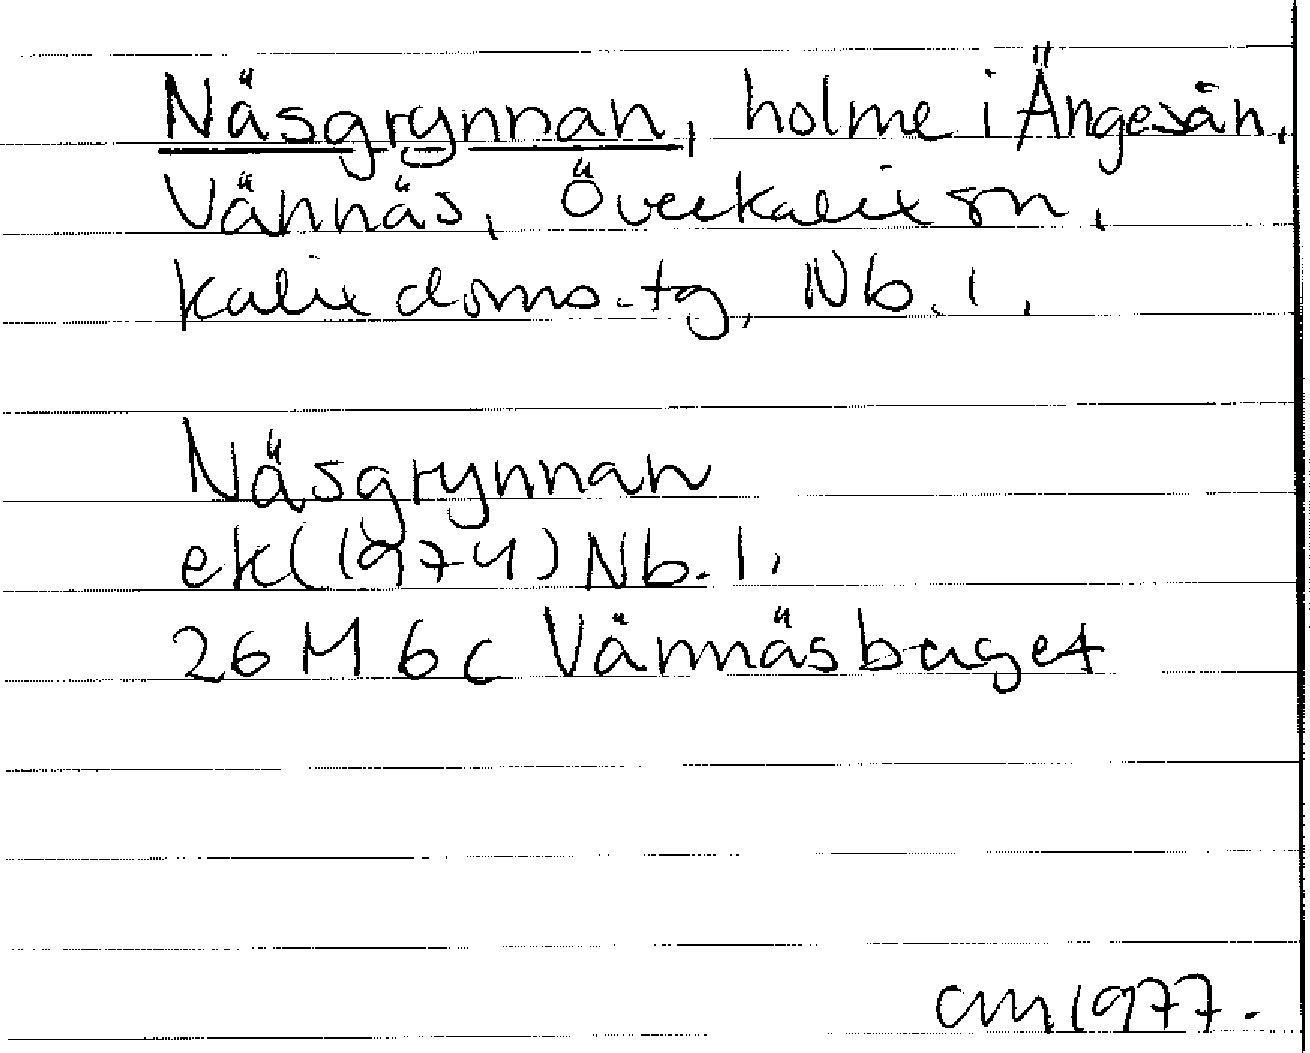 Näsgrynnan, holme i Ängesån,
Vännäs, Överkalix sn,
Kalix doms. tg, Nb. l.
Näsgrynnan
ek(1974) Nb. l.
26 M 6c Vännäsberget
CM 1977.